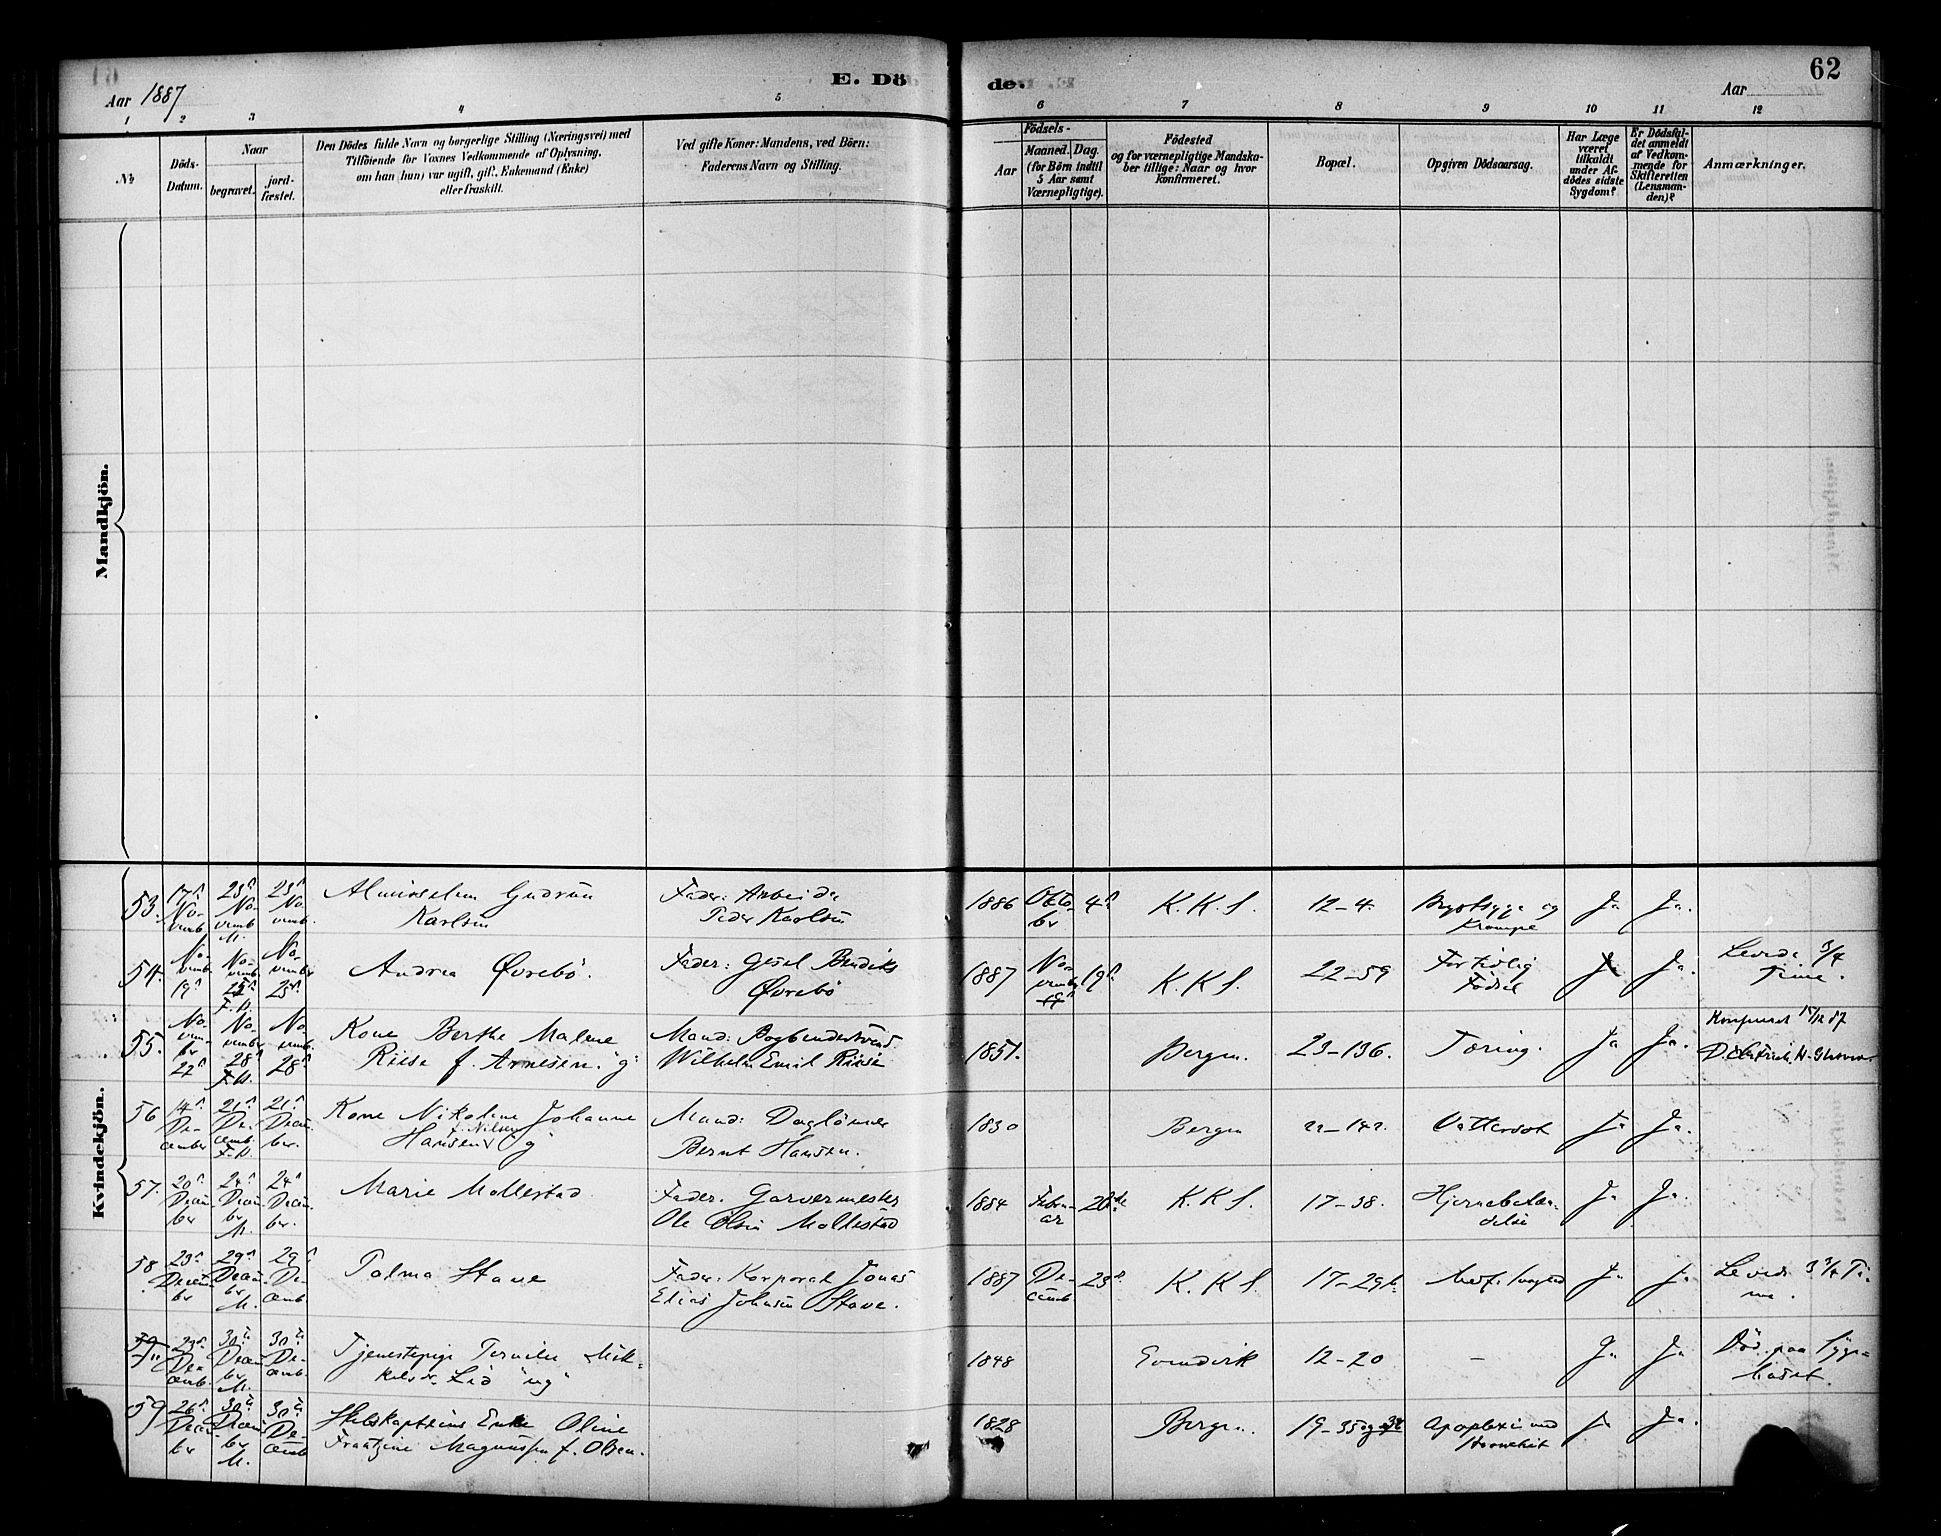 Aar 1887
E. Dö
de.
62
Aar
1 2 3 4 5 6 7 8 9 10 11 12
№
Döds-
Datum.
Naar
begravet.
jord-
fæstet.
Den Dödes fulde Navn og borgerlige Stilling (Næringsvei) med
Tilföiende for Voxnes Vedkommende af Oplysning,
om han (hun) var ugift, gift, Enkemand (Enke)
eller fraskilt.
Ved gifte Koner: Mandens, ved Börn:
Faderens Navn og Stilling.
Födsels-
Aar
Maaned. Dag.
(for Börn indtil
5 Aar samt
Værnepligtige).
Födested
og for værnepligtige Mandska-
ber tillige: Naar og hvor
konfirmeret.
Bopæl.
Opgiven Dödsaarsag.
Har Læge
været
tilkaldt
under Af-
dödes sidste
Sygdom?
Er Dödsfal-
det anmeldt
af Vedkom-
mende for
Skifteretten
(Lensman-
den)?
Anmærkninger.
Mandkjön.
Kvindekjön.
53.
17
No-
vemb.
23
No-
vemb
M.
23
No-
vemb.
Gudrun
Karlsen
Fader: Arbeider
Peder Karlsen
1886
Okto-
ber
4
K. K. S.
12-4.
Brystsyge og
Krampe
Ja
Ja.
54.
No-
vember
19
No-
vemb
F.H.
No-
vember
23
Andrea Øvrebö.
Fader: Bendiks
Øvrebö
1887
No-
vember
19
K. K. S.
22-59
For tidlig
Födsel
Ja.
Levede 3/4
Time.
55.
No-
vem-
ber
22
No-
vember
28
F.H.
No-
vemb.
28
Kone Berthe Malene
Riise f. Arnesen. "g"
Mand: Bogbindersvend
Wilhelm Emil Riise
1851.
Bergen.
23-136.
Tæring.
Ja
Ja.
56
14
De-
cember
21
De-
cemb.
F.H.
21
Decem-
ber.
Kone Nikoline Johanne
f. Nilsen
Hansen "g"
Mand: Daglönner
Bernt Hansen.
1830
Bergen
22-142.
Vattersot
Ja
Ja.
57.
20
Decem-
ber
24
Decem-
ber
M.
24
Decem-
ber.
Marie Mollestad
Fader. Garvermester
Ole Olsen Mollestad
1884
Febru-
ar
K. K. S.
17-38.
Hjernebetæn-
delse
Ja
Ja.
58
23
Decem-
ber
29
Decem-
ber
M.
29
De-
cemb
Palma Stave
Fader: Korporal Jonas
Elias Johnsen Stave.
1887
De-
cemb
23
K. K. S.
17-29b.
Medf. Svaghed
Ja
Ja
Levede 3 3/4 Ti-
me.
23
De-
cemb.
30
Decem-
ber
M.
30
De-
cemb.
Tjenestepige Mik-
kelsdr. Lid "ug"
1848
Evindvik
12-20
-
Ja
Ja
Död paa Syge-
huset.
59
26
Decem-
ber
30
Decem-
ber
M.
30
De-
cemb
Enke Oline
Magnussen f. Olsen.
1828
Bergen.
19-35
Apoplexi med
Ja
Ja.